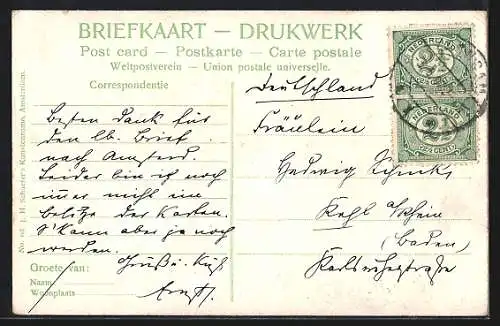 BRIEFKAART — DRUKWERK
Post card — Postkarte — Carte postale
Weltpostverein — Union postale universelle.
Correspondentie
Besten Dank für
den lb. Brief
nach Amsterd.
Leider bin ich noch
immer nicht im
Besitze der Karten.
S'kann aber ja noch
werden.
Gruß u. Kuß
Groete van:
Naam
Woonplaats
No. J. H. Schaefer's Kunstchromo, Amsterdam.
Deutschland
Fräulein
Hedwig
Kehl a/Rhein
(Baden)
Karlsruherstraße
NEDERLAND
2½
2½ CENT
NEDERLAND
2½
2½ CENT